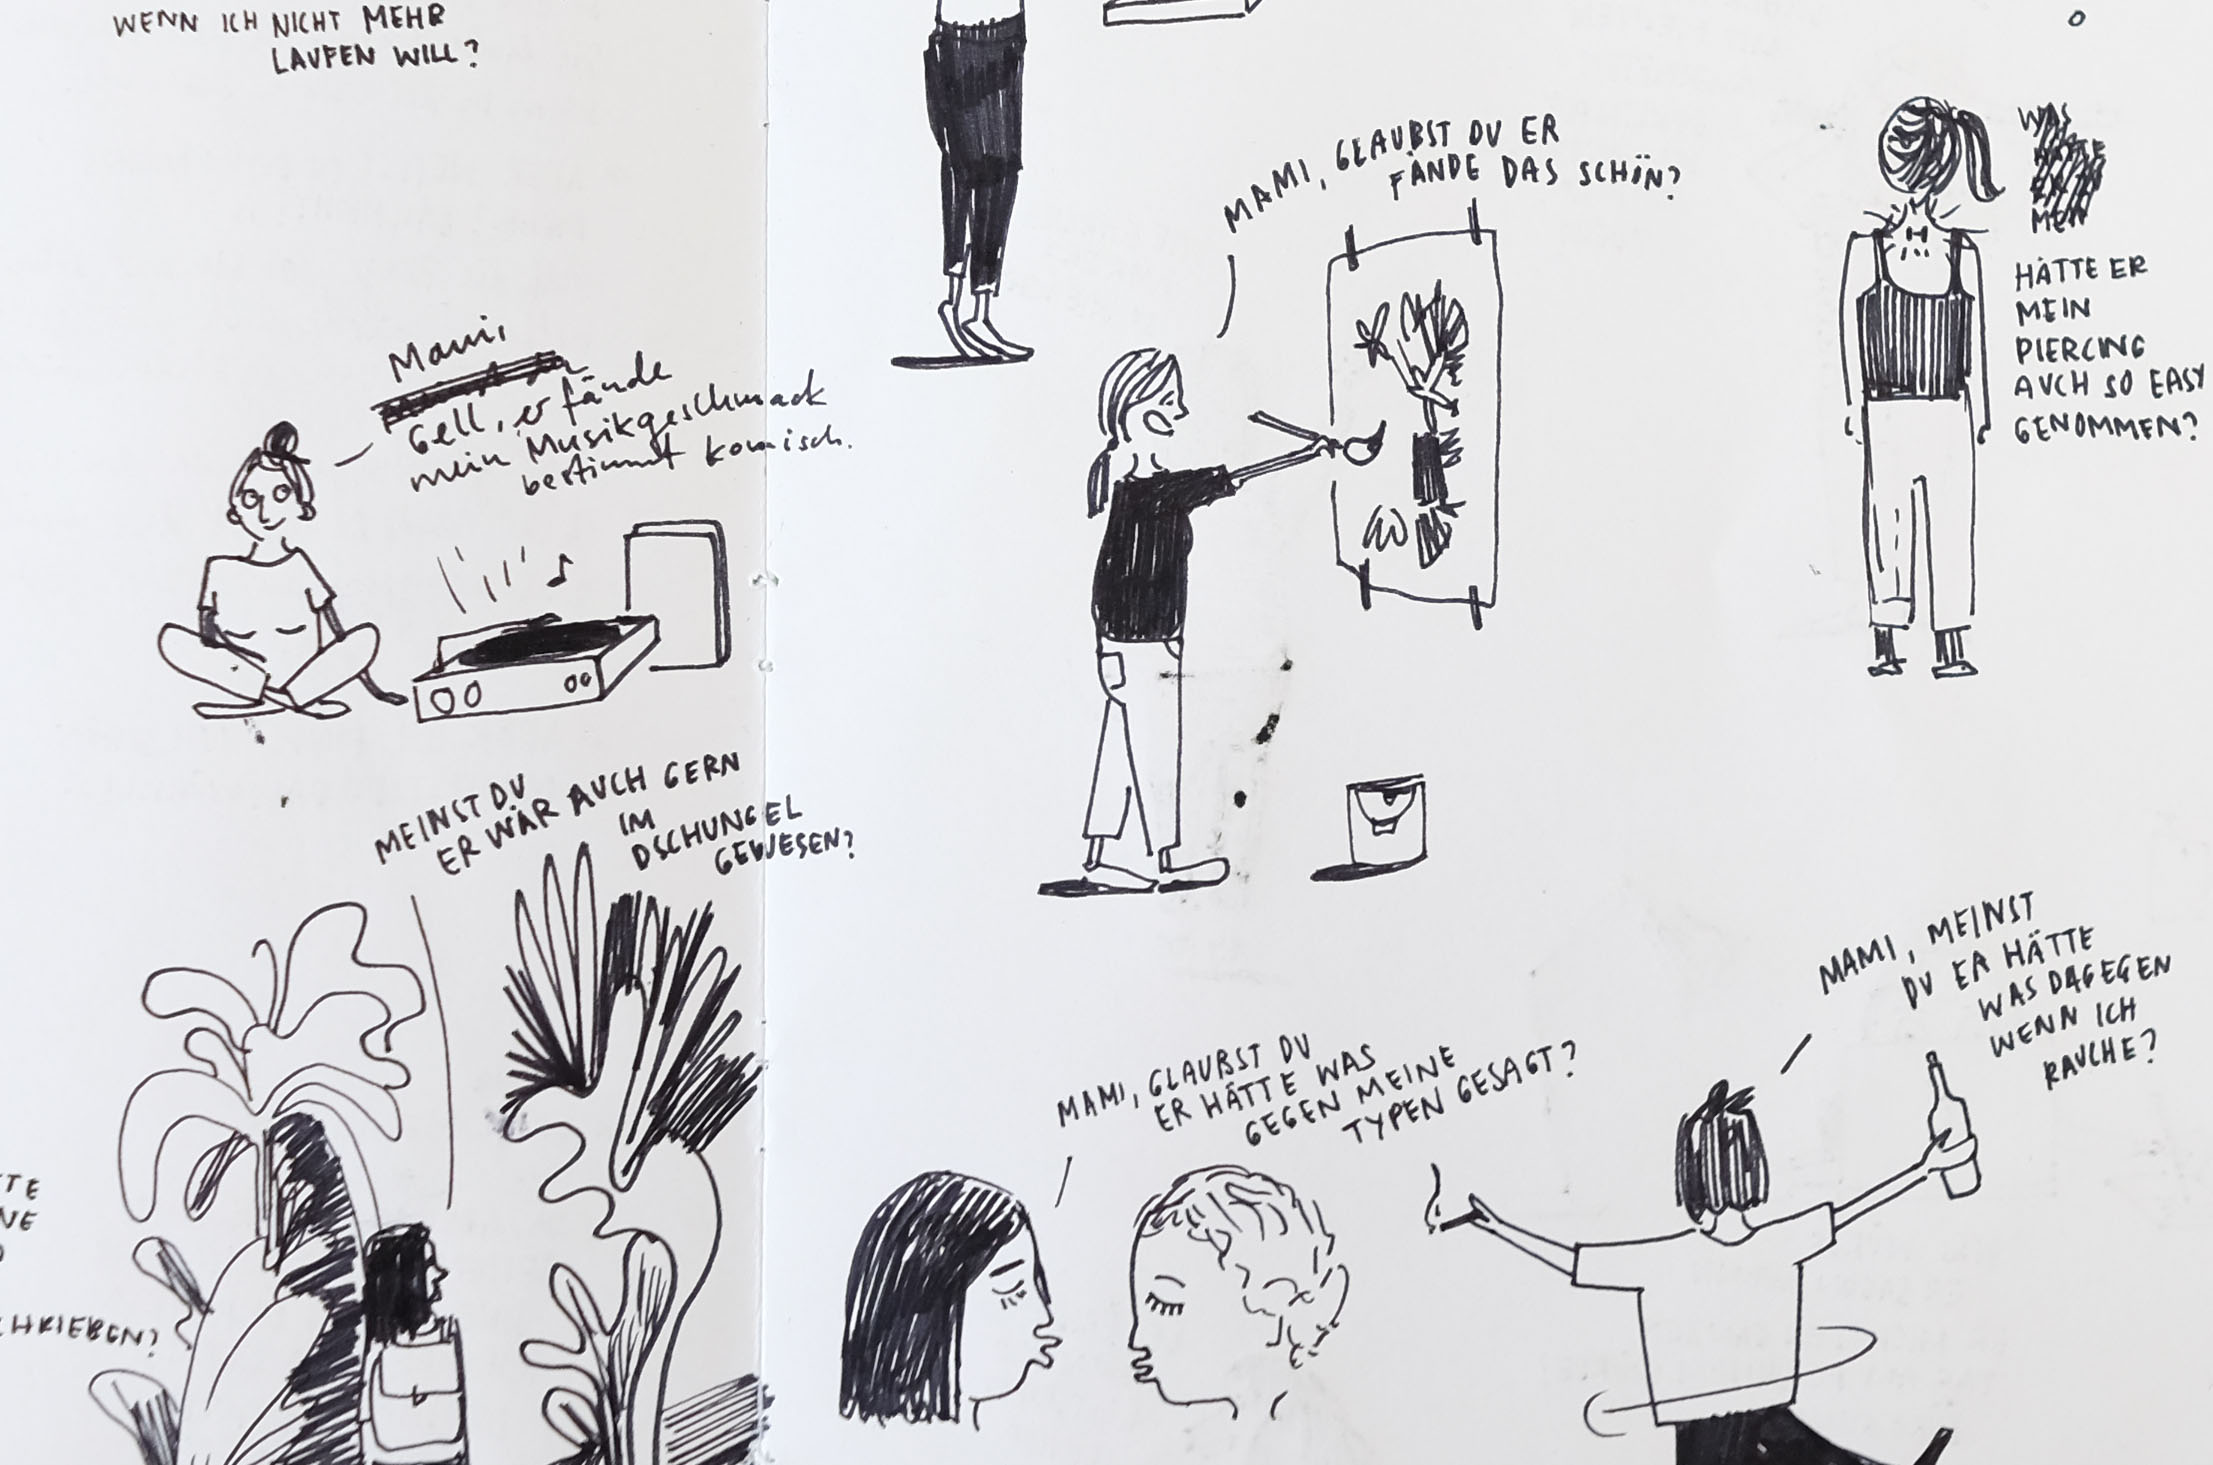 WENN ICH NICHT MEHR
LAUFEN WILL?
Mami,
Gell, er fände
mein Musikgeschmack
bestimmt komisch.
MEINST DU
ER WÄR AUCH GERN
IM
DSCHUNGEL
GEWESEN?
MAMI, GLAUBST DU ER
FÄNDE DAS SCHÖN?
WAS
MEIN
HÄTTE ER
MEIN
PIERCING
AUCH SO EASY
GENOMMEN?
MAMI, GLAUBST DU
ER HÄTTE WAS
GEGEN MEINE
TYPEN GESAGT?
MAMI, MEINST
DU ER HÄTTE
WAS DAGEGEN
WENN ICH
RAUCHE?